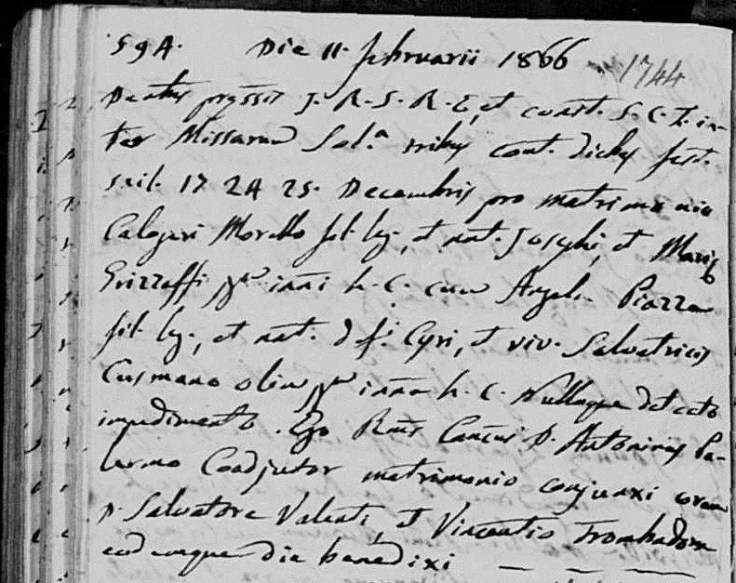 594. Die 11. februarii 1866 1744
S. R. E., et const. S. C. T. in-
ter Missarum Sol.a tribus cont. diebus fest.
scil. 17 24 25. Decembris pro matrimonio
Calogeri Morello fil. leg., et nat. Josephi, et Mariæ
Grizzaffi h. C. cum Angela Piazza
fil. leg., et nat. d. f. Cyri, et viv. Salvatricis
Cusmano olim h. C. Nulloque detecto
impedimento. Ego D. Antoninus Pa-
lermo Coadjutor matrimonio conjunxi coram
D. Salvatore Valenti, et Vincentio Trombadore
eodemque die benedixi